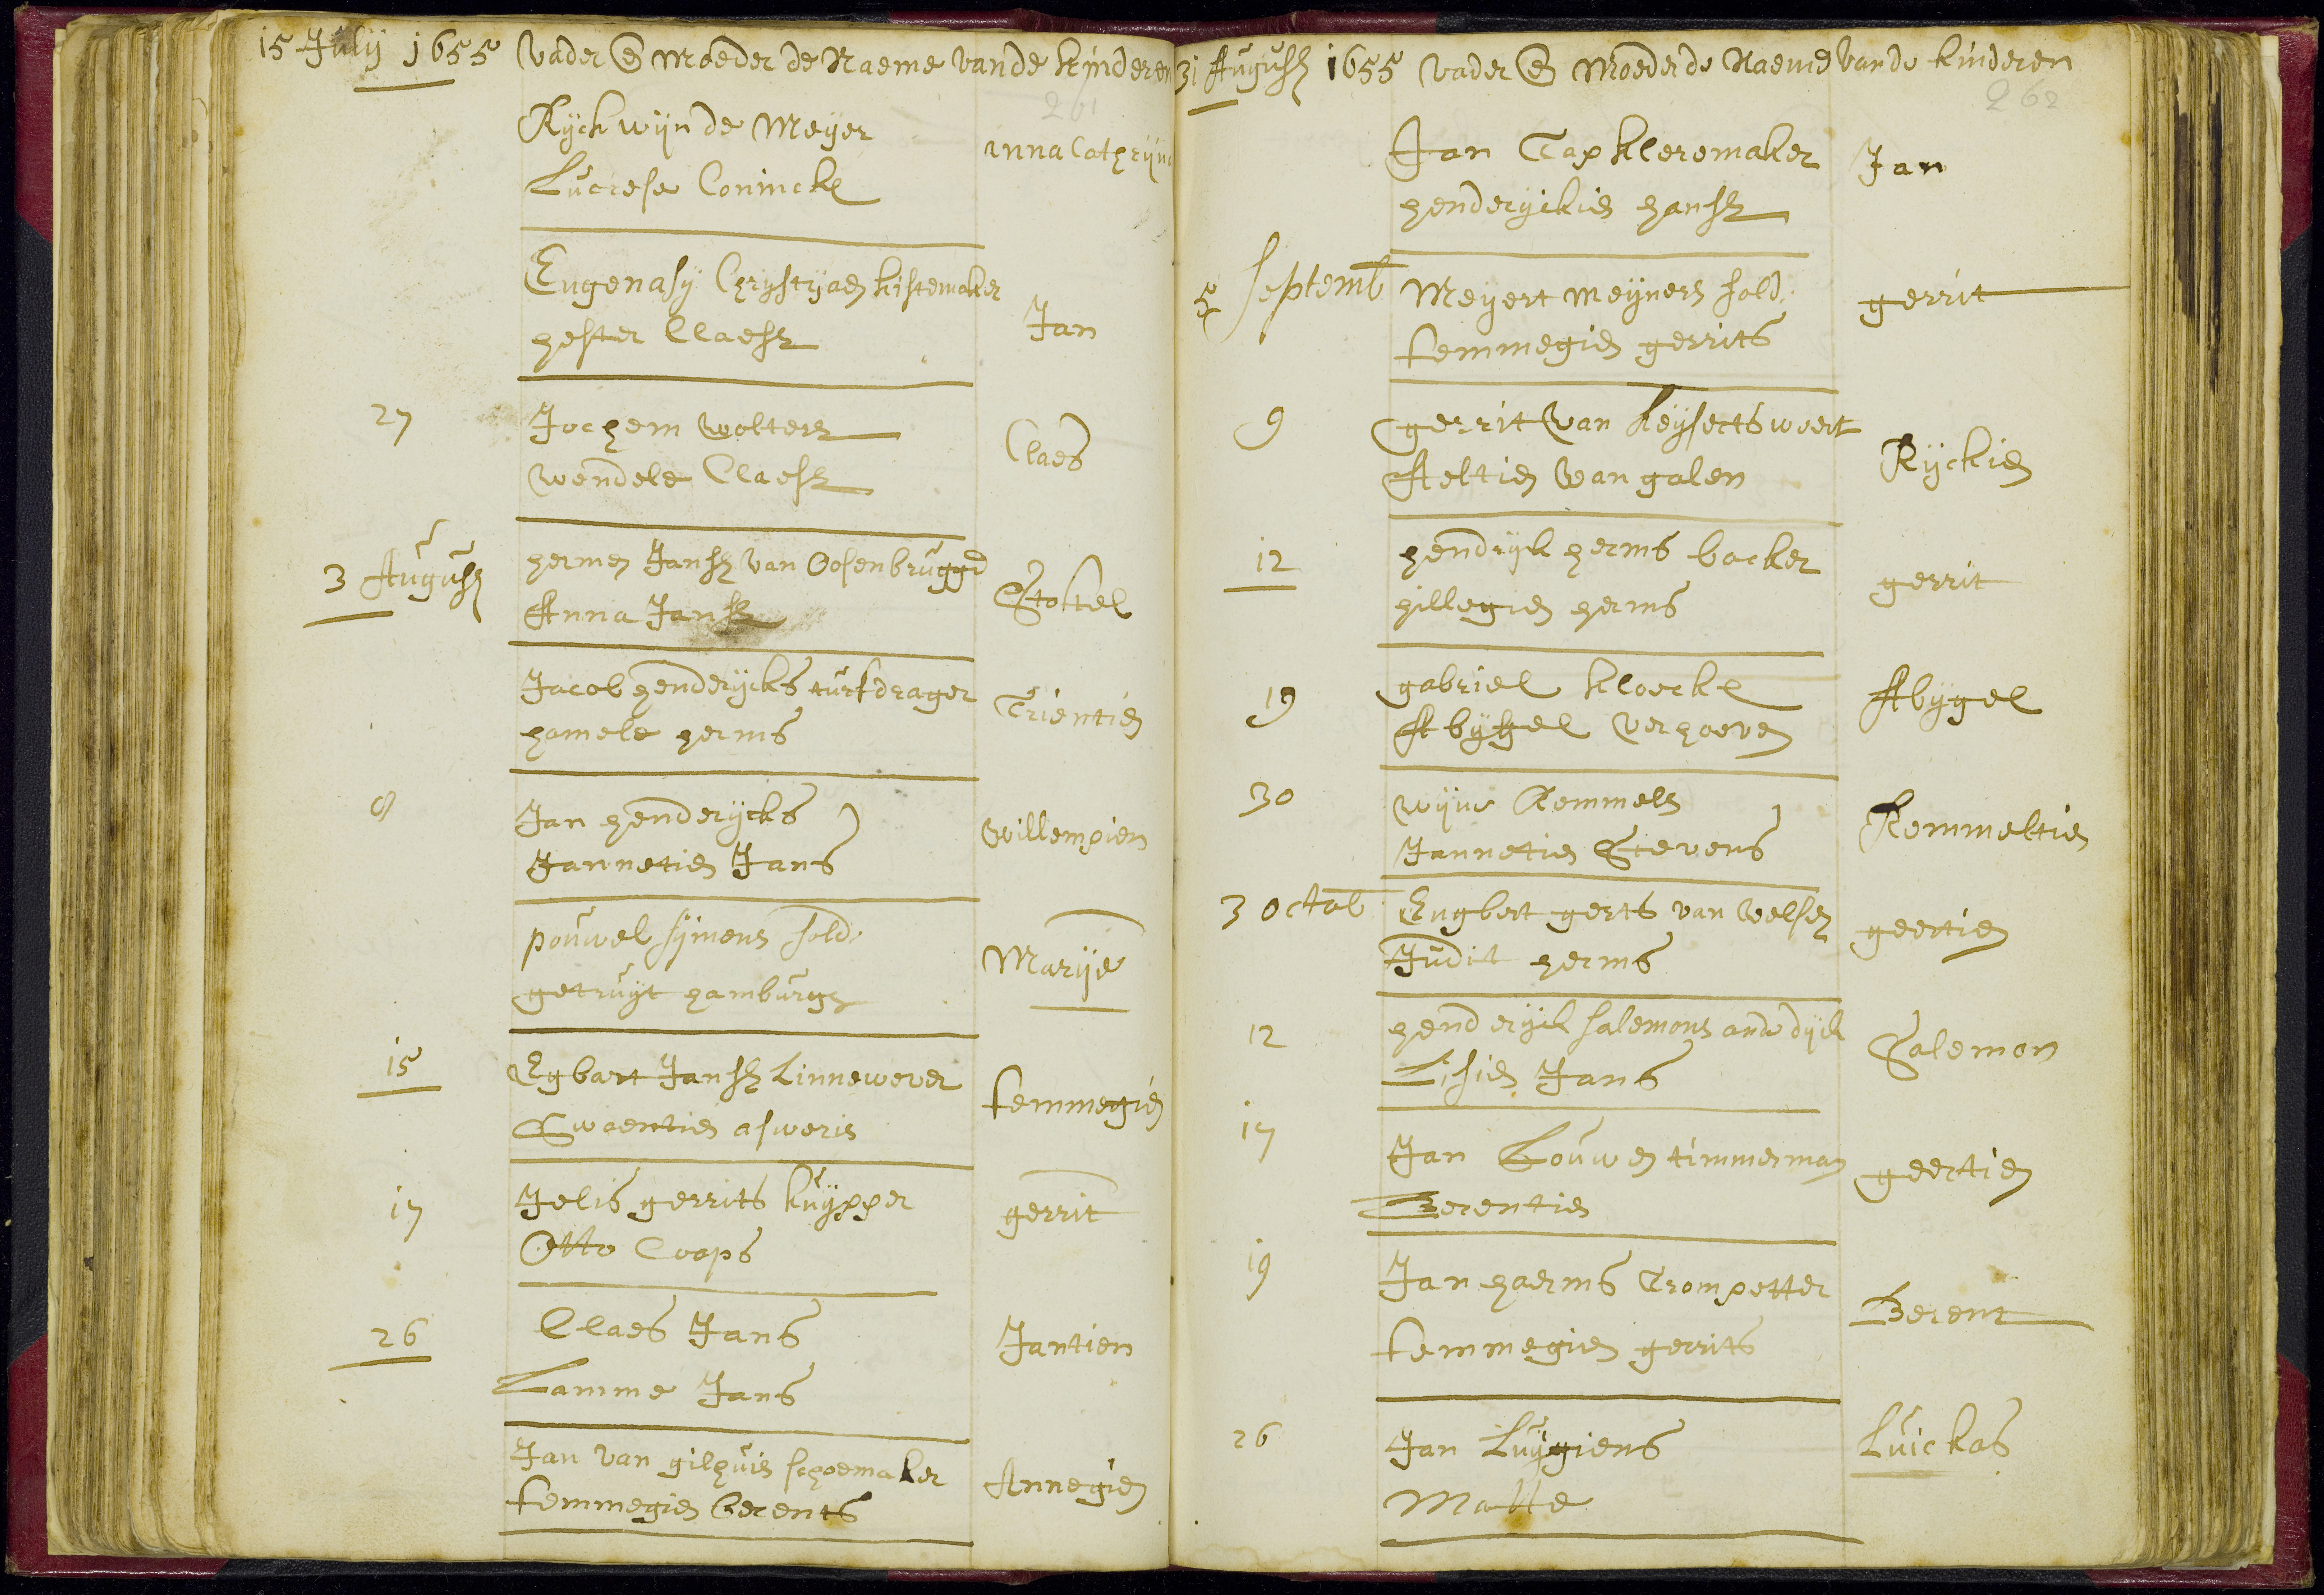 15 Julij 1655 Vader en Moeder de Naeme vande kinderen
261
Ryckwijn de Meyer
Lucrese Coninck
anna Cathrijn
Eugenasy Chrystyaen kistemaker
hester Claesz
Jan
27
Jochem wolters
wendele Claesz
Claes
3 August
hermen Jansz van Oosenbrugge
Anna Jansz
Stottel
Jacob henderycks turfdrager
hamele herms
Trientien
8
Jan henderycks
Jannetien Jans
willempien
pouwel symens sold.
getruyt hamburgs
Marije
15
Egbart Jansz Linnewever
Swaentien asweris
temmegien
17
Jelis gerrits kuypper
Otto Coops
gerrit
26
Claes Jans
Lamme Jans
Jantien
Jan van gilhuis schoemaker
temmegien berents
Annegien
31 August 1655 Vader en Moeder de Naeme vande kinderen
262
Jan Tap kleremaker
henderyckien hansz
Jan
5 septemb
Meyert meyners sold.
temmegien gerrits
gerrit
9
gerrit van keysertsweert
Aeltien van galen
Ryckien
12
hendryk herms backer
hillegien herms
gerrit
19
gabriel kloeck
Abygel verhoeven
Abygel
30
wyne Remmels
Jannetien Stevens
Remmeltien
3 octob
Engbert gerts van welsen
Judit herms
geertien
12
henderyck salemons ande dyck
Lisien Jans
Salemon
17
Jan Louwen timmerman
Berentien
geertien
19
Jan haerms Trompetter
temmegien gerrits
Berent
26
Jan Luygiens
Matte
Luickas